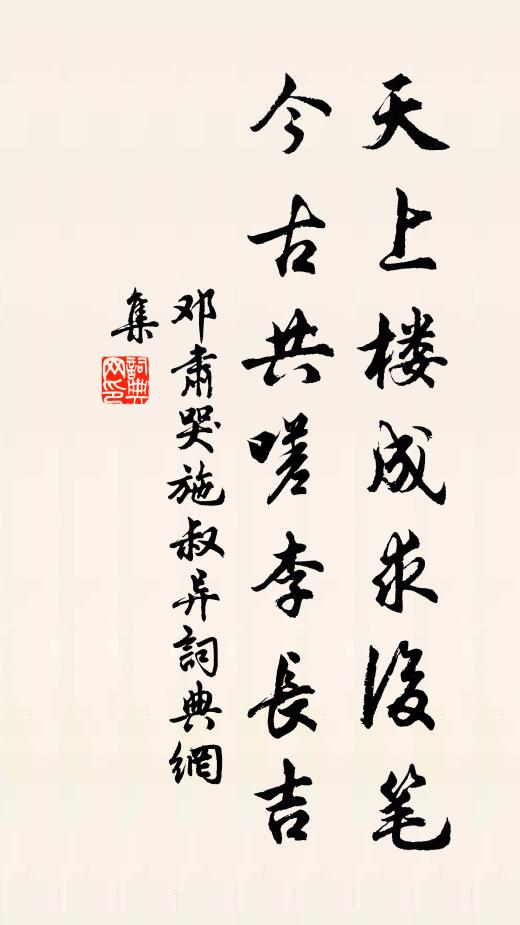 天上楼成求俊笔
今古共嗟李長吉
邓肃哭施叔异詞典網
集
詞典
网印